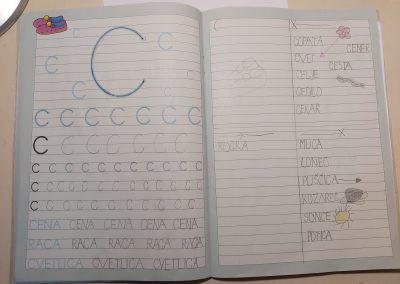 C
C C
C C
C C C C C C C C
C C C C C C C C
C C C C C C C C C C
C C C C C C C C C C
C C C C C C C C C C
CENA CENA CENA CENA CENA
RACA RACA RACA RACA RACA
CVETLICA CVETLICA CVETLICA
C X
COPATA
CVET
CELJE CESTA
CEDILO
CEKAR
X
KOCKA MUCA
LONEC
PUŠČICA
KOZAREC
SONCE